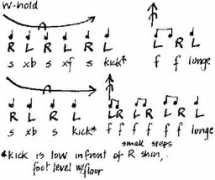 W-hold
R L R L R L L R L
s xb s xf s kick* f f lunge
R L R L R L R L R L
s xb s kick* f f f f f f lunge
small steps
*kick is low in front of R shin,
foot level w/floor